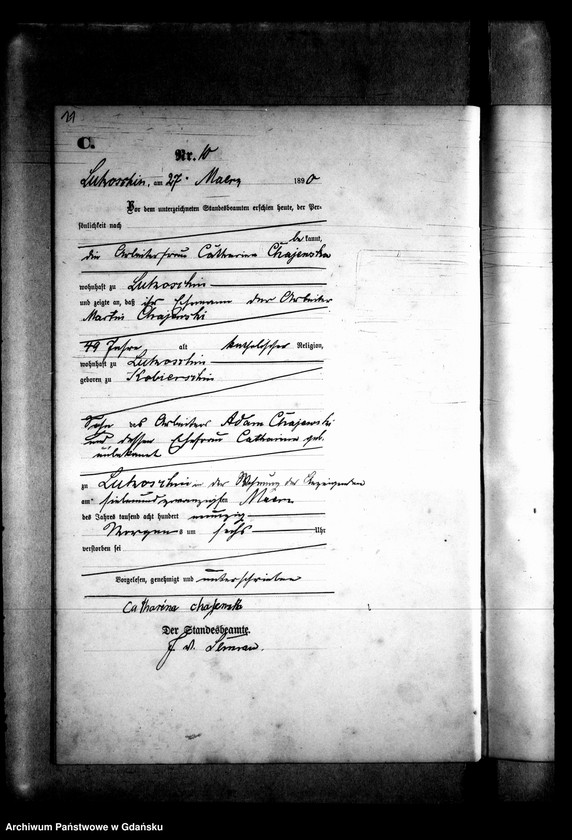 21
C.
Nr. 10
Lukoschin, am 27. Maerz 1890
Vor dem unterzeichneten Standesbeamten erschien heute, der Per-
sönlichkeit nach
bekannt,
die Arbeiterfrau Catharina Chajewska
wohnhaft zu Lukoschin
und zeigte an, daß ihr Ehemann der Arbeiter
Martin Chajewski
49 Jahre alt katholischer Religion,
wohnhaft zu Lukoschin
geboren zu Kobierschin
Sohn des Arbeiters Adam Chajewski
und dessen Ehefrau Catharina geb.
unbekannt
zu Lukoschin in der Wohnung der Anzeigenden
am siebenundzwanzigsten Maerz
des Jahres tausend acht hundert neunzig
Morgens um sechs Uhr
verstorben sei
Vorgelesen, genehmigt und unterschrieben
Catharina Chajewsk
Der Standesbeamte.
Archiwum Państwowe w Gdańsku